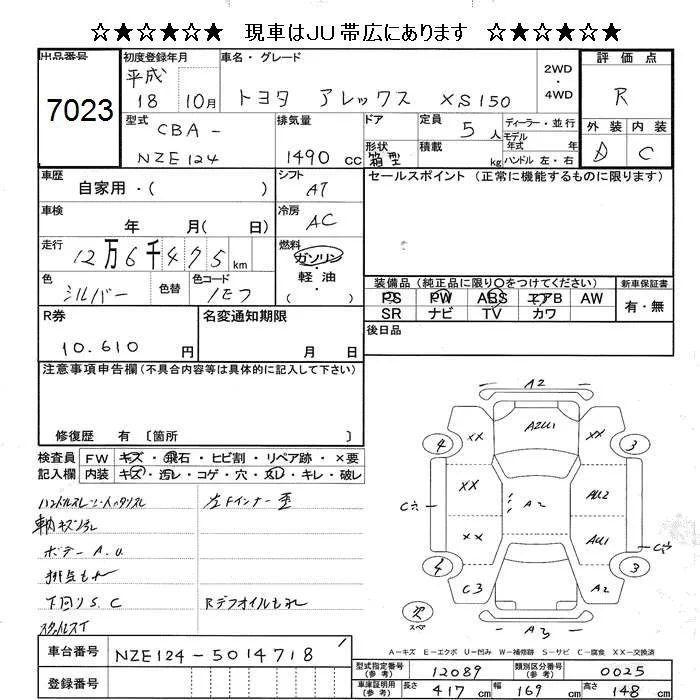 ☆★☆★☆★ 現車はJU帯広にあります ☆★☆★☆★
出品番号
7023
初度登録年月
平成
18 10月
車名・グレード
トヨタ アレックス XS150
2WD
・
4WD
評価点
R
外装 内装
D C
型式
CBA-
NZE124
排気量
1490 cc
ドア
形状
箱型
定員
5人
積載
kg
ディーラー・並行
モデル
年式 年
ハンドル 左・右
車歴
自家用・( )
シフト
AT
セールスポイント (正常に機能するものに限ります)
車検
年 月( 日)
冷房
AC
走行
12万6千475km
燃料
ガソリン
・
軽油
( )
色
シルバー
色替
色コード
1E7
装備品 (純正品に限り○をつけてください)
PS PW ABS エアB AW
SR ナビ TV カワ
新車保証書
有・無
R券
10.610 円
名変通知期限
月 日
後日品
注意事項申告欄 (不具合内容等は具体的に記入して下さい)
修復歴 有 〔箇所 〕
検査員
記入欄
FW キズ・飛石・ヒビ割・リペア跡・×要
内装 キズ・汚レ・コゲ・穴・スレ・キレ・破レ
左Fインナー歪
ボデーA.U
下回りS.C
Rデフオイルもれ
A2
A2U1
XX XX
4 3
XX AU2
A2
XX AU1
4 3
C3 A2
スペア
A3
A−キズ E−エクボ U−凹み W−補修跡 S−サビ C−腐食 XX−交換済
車台番号
NZE124-5014718
登録番号
型式指定番号
(参考)
12089
類別区分番号
(参考)
0025
車庫証明用
(参考)
長さ 417 cm 幅 169 cm 高さ 148 cm